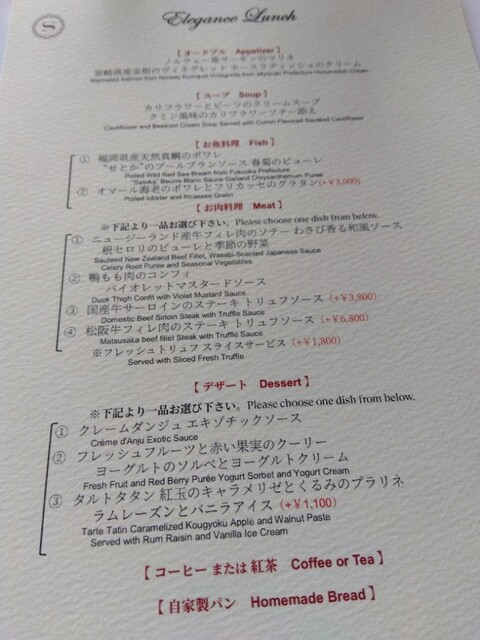 S
Elegance Lunch
【 オードブル Appetizer 】
ノルウェー産サーモンのマリネ
宮崎県産金柑のヴィネグレット ホースラディッシュのクリーム
Marinated Salmon from Norway Kumquat Vinaigrette from Miyazaki Prefecture Horseradish Cream
【 スープ Soup 】
カリフラワーとビーツのクリームスープ
クミン風味のカリフラワーソテー添え
Cauliflower and Beetroot Cream Soup Served with Cumin-Flavored Sauteed Cauliflower
【 お魚料理 Fish 】
① 福岡県産天然真鯛のポワレ
"せとか"のブールブランソース 春菊のピューレ
Poiled Wild Red Sea Bream from Fukuoka Prefecture
"Setoka" Beurre Blanc Sauce Garland Chrysanthemum Puree
② オマール海老のポワレとフリカッセのグラタン(+￥3,000)
Poiled lobster and fricassee Gratin
【 お肉料理 Meat 】
※下記より一品お選び下さい。Please choose one dish from below.
① ニュージーランド産牛フィレ肉のソテー わさび香る和風ソース
根セロリのピューレと季節の野菜
Sauteed New Zealand Beef Fillet, Wasabi-Scented Japanese Sauce
Celery Root Puree and Seasonal Vegetables
② 鴨もも肉のコンフィ
バイオレットマスタードソース
Duck Thigh Confit with Violet Mustard Sauce
③ 国産牛サーロインのステーキ トリュフソース (+￥3,800)
Domestic Beef Sirloin Steak with Truffle Sauce
④ 松阪牛フィレ肉のステーキ トリュフソース (+￥6,800)
Matsusaka beef fillet Steak with Truffle Sauce
※フレッシュトリュフ スライスサービス (+￥1,800)
Served with Sliced Fresh Truffle.
【 デザート Dessert 】
※下記より一品お選び下さい。Please choose one dish from below.
① クレームダンジュ エキゾチックソース
Crème d'Anju Exotic Sauce
② フレッシュフルーツと赤い果実のクーリー
ヨーグルトのソルベとヨーグルトクリーム
Fresh Fruit and Red Berry Purée Yogurt Sorbet and Yogurt Cream
③ タルトタタン 紅玉のキャラメリゼとくるみのプラリネ
ラムレーズンとバニラアイス (+￥1,100)
Tarte Tatin Caramelized Kougyoku Apple and Walnut Paste
Served with Rum Raisin and Vanilla Ice Cream
【 コーヒー または 紅茶 Coffee or Tea 】
【 自家製パン Homemade Bread 】